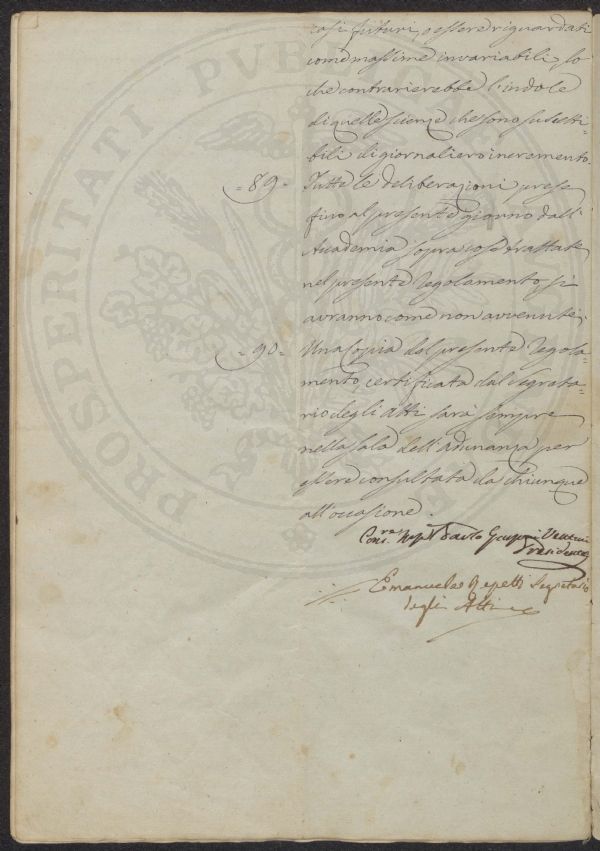 casi futuri, o essere riguardati
come massime invariabili, lo
che contrarierebbe l'indole
di quelle scienze che sono suscetti-
bili di giornaliero incremento.
-89- Tutte le deliberazioni prese
fino al presente giorno dall'
Accademia sopra cose trattate
nel presente Regolamento, si
avranno come non avvenute.
-90- Una Copia del presente Regola-
mento, certificata dal Segreta-
rio degli Atti sarà sempre
nella sala dell'adunanza per
essere consultata da chiunque
all'occasione.
Cons.re
Presidente
Emanuele Repetti Segretario
degli Atti
PROSPERITATI PUBLICAE